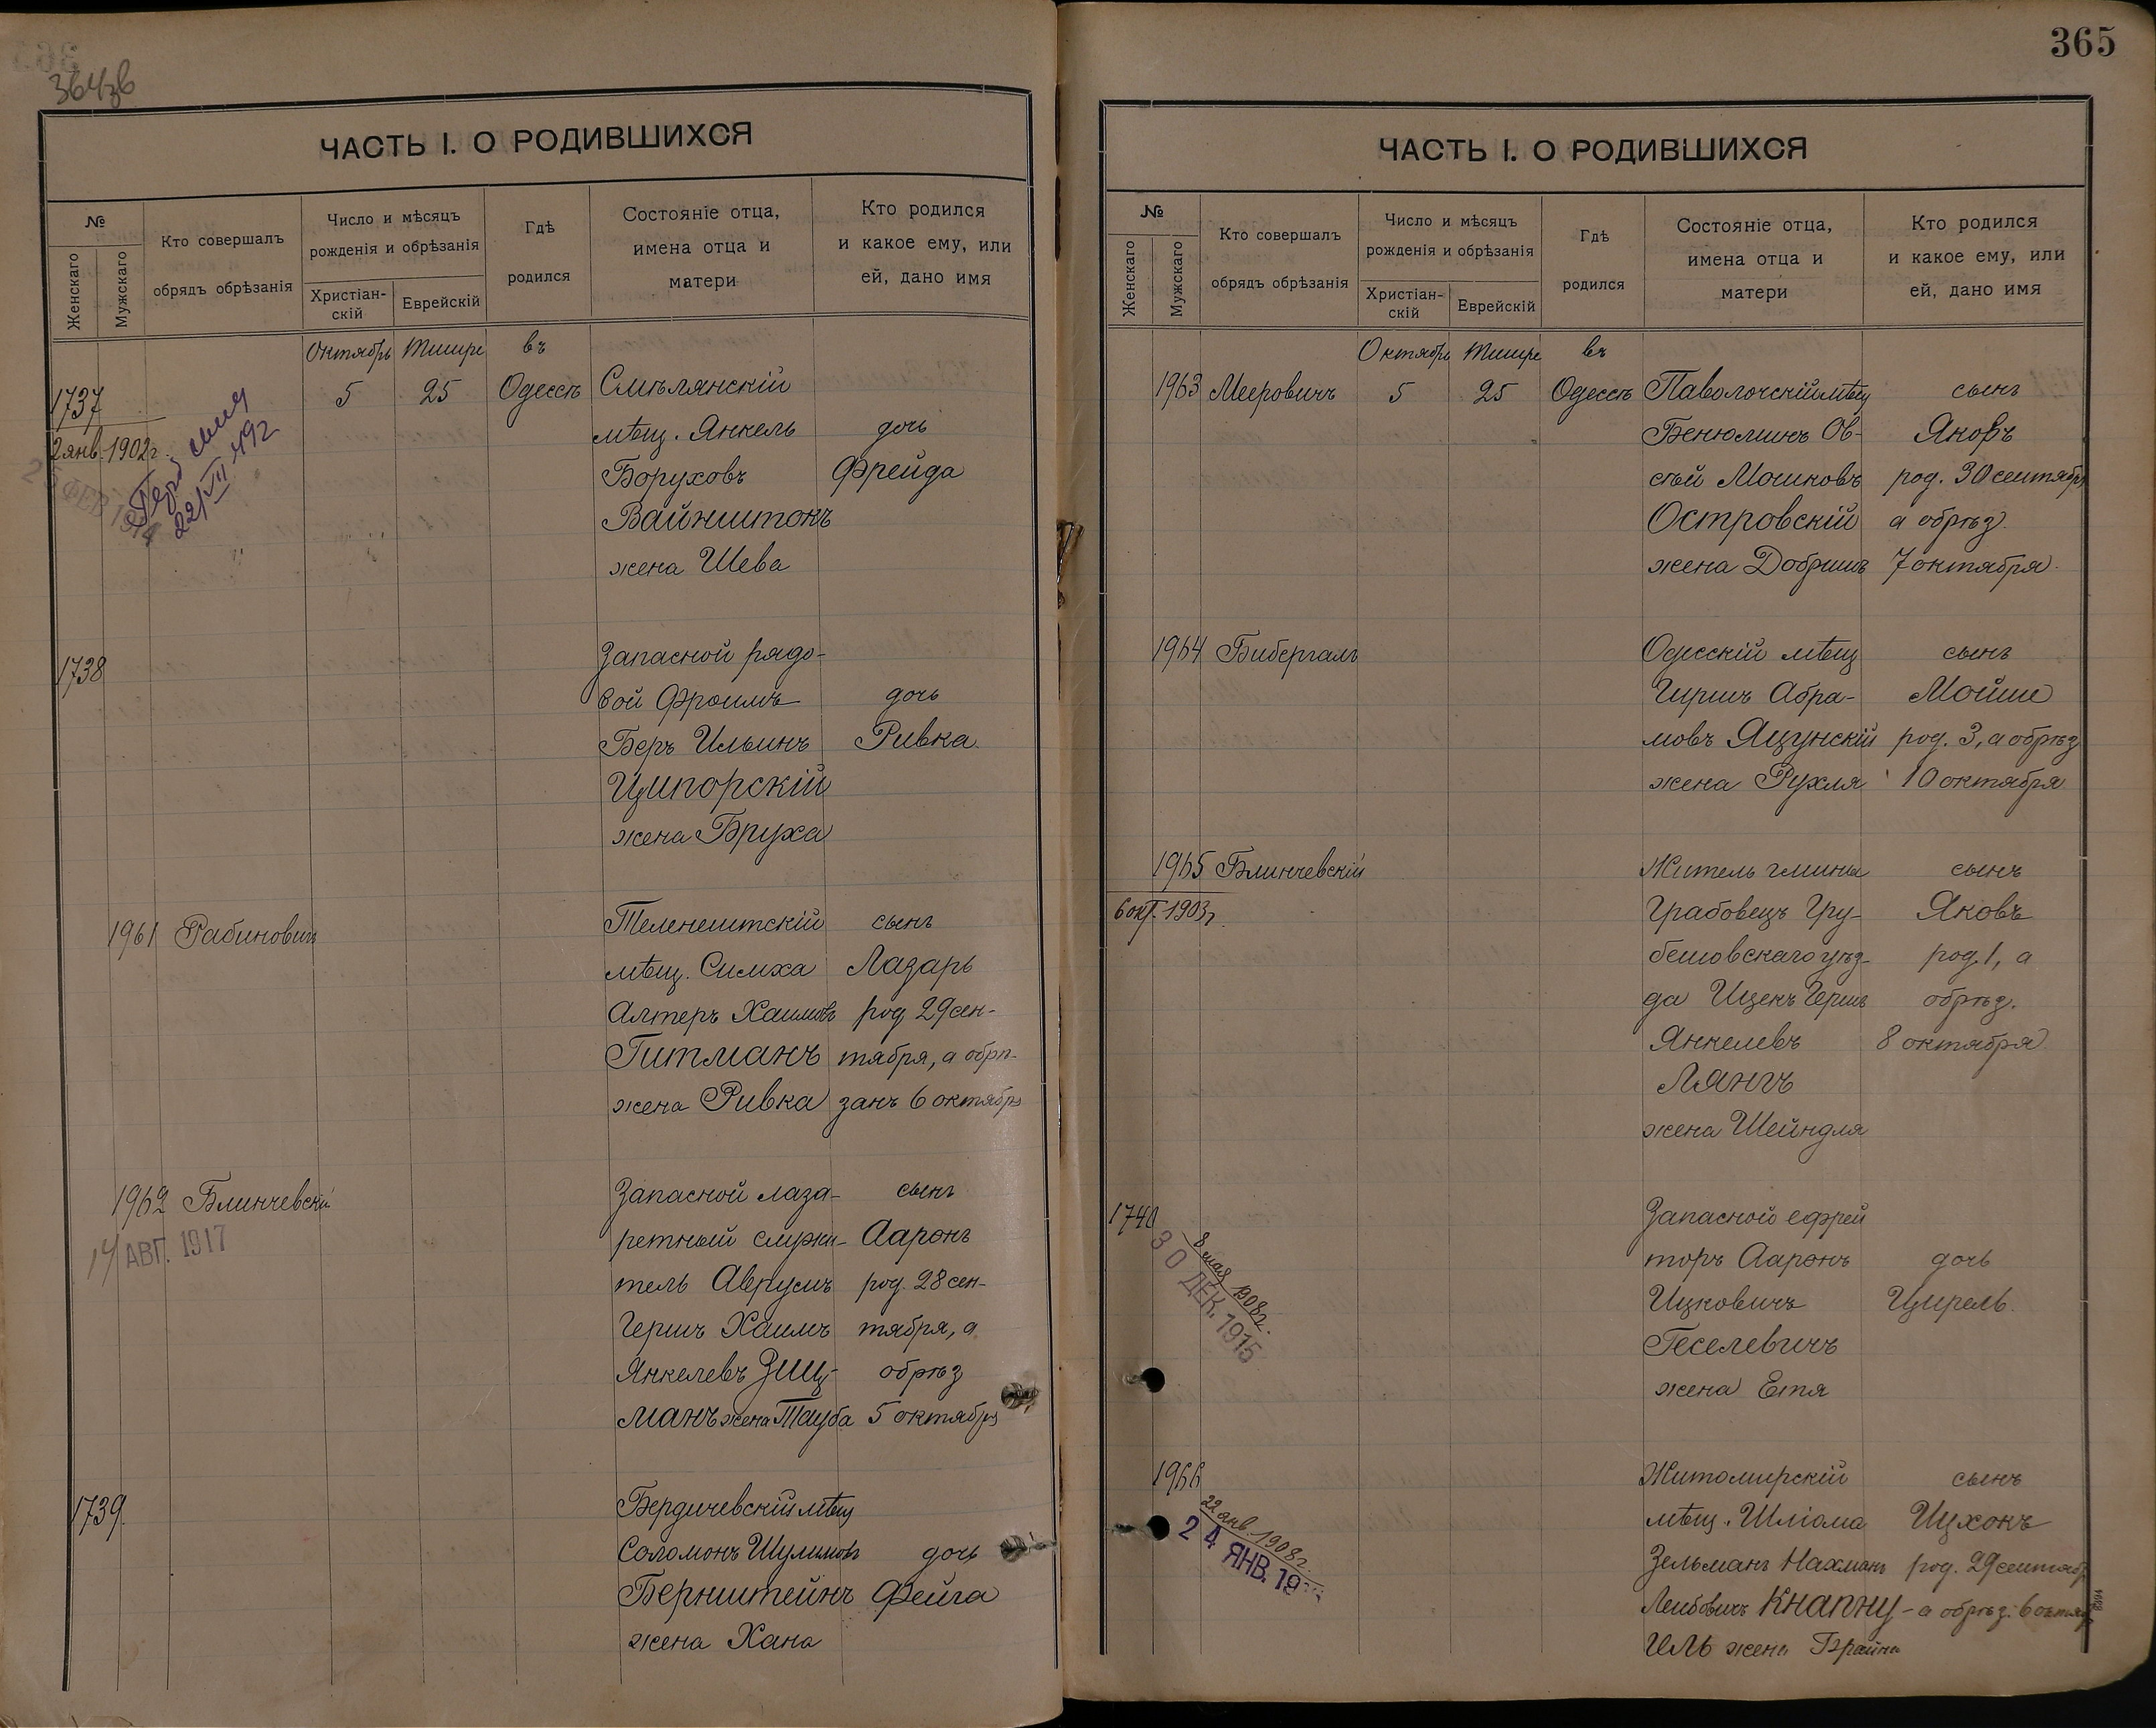 364 зв
ЧАСТЬ I. О РОДИВШИХСЯ
№
Женскаго
Мужскаго
Кто совершалъ
обрядъ обрѣзанія
Число и мѣсяцъ
рожденія и обрѣзанія
Христіан-
скій
Еврейскій
Гдѣ
родился
Состояніе отца,
имена отца и
матери
Кто родился
и какое ему, или
ей, дано имя
Октябрь Тишре въ
1737 5 25 Одессѣ Смѣлянскій
2 янв. 1902 г. мѣщ. Янкель дочь
Боруховъ Фрейда
Вайнштокъ
жена Шева
22/VII 492
1738 Запасной рядо-
вой Фроимъ дочь
Беръ Ильинъ Ривка
Ципорскій
жена Бруха
1961 Рабиновичъ Теленештскій сынъ
мѣщ. Симха Лазарь
Алтеръ Хаимовъ род. 29 сен-
Гитманъ тября, а обрѣ-
жена Ривка занъ 6 октября
1962 Блинчевскій Запасной лаза- сынъ
14 АВГ. 1917 ретный служи- Ааронъ
тель Аврумъ род. 28 сен-
Гершъ Хаимъ тября, а
Янкелевъ Зиц- обрѣз
манъ жена Тауба 5 октября
1739 Бердичевскій мѣщ
Соломонъ Шулимовъ дочь
Бернштейнъ Фейга
жена Хана
365
ЧАСТЬ I. О РОДИВШИХСЯ
№
Женскаго
Мужскаго
Кто совершалъ
обрядъ обрѣзанія
Число и мѣсяцъ
рожденія и обрѣзанія
Христіан-
скій
Еврейскій
Гдѣ
родился
Состояніе отца,
имена отца и
матери
Кто родился
и какое ему, или
ей, дано имя
Октябрь Тишре въ
1963 Мееровичъ 5 25 Одессѣ Паволочскій мѣщ сынъ
Бенюминъ Ов- Яковъ
сѣй Мошковъ род. 30 сентября
Островскій а обрѣз.
жена Добришъ 7 октября
1964 Бибергалъ Одесскій мѣщ сынъ
Гиршъ Абра- Мойше
мовъ Яцунскій род. 3, а обрѣз
жена Рухля 10 октября
1965 Блинчевскій Житель гмины сынъ
6 окт. 1903 г. Грабовецъ Гру- Яковъ
бешовскаго уѣз- род. 1, а
да Ицекъ Гершъ обрѣз.
Янкелевъ 8 октября
Лянгъ
жена Шейндля
1740 Запасной ефрей
8 мая 1908 г. торъ Ааронъ дочь
30 ДЕК. 1915 Ицковичъ Цирель
Геселевичъ
жена Етя
1966 Житомирскій сынъ
22 янв. 1908 г. мѣщ. Шліома Ицхокъ
24 ЯНВ. 19 Зельманъ Нахманъ род. 29 сентяб.
Лейбовичъ Кнапну- а обрѣз. 6 октяб
иль жена Брайна